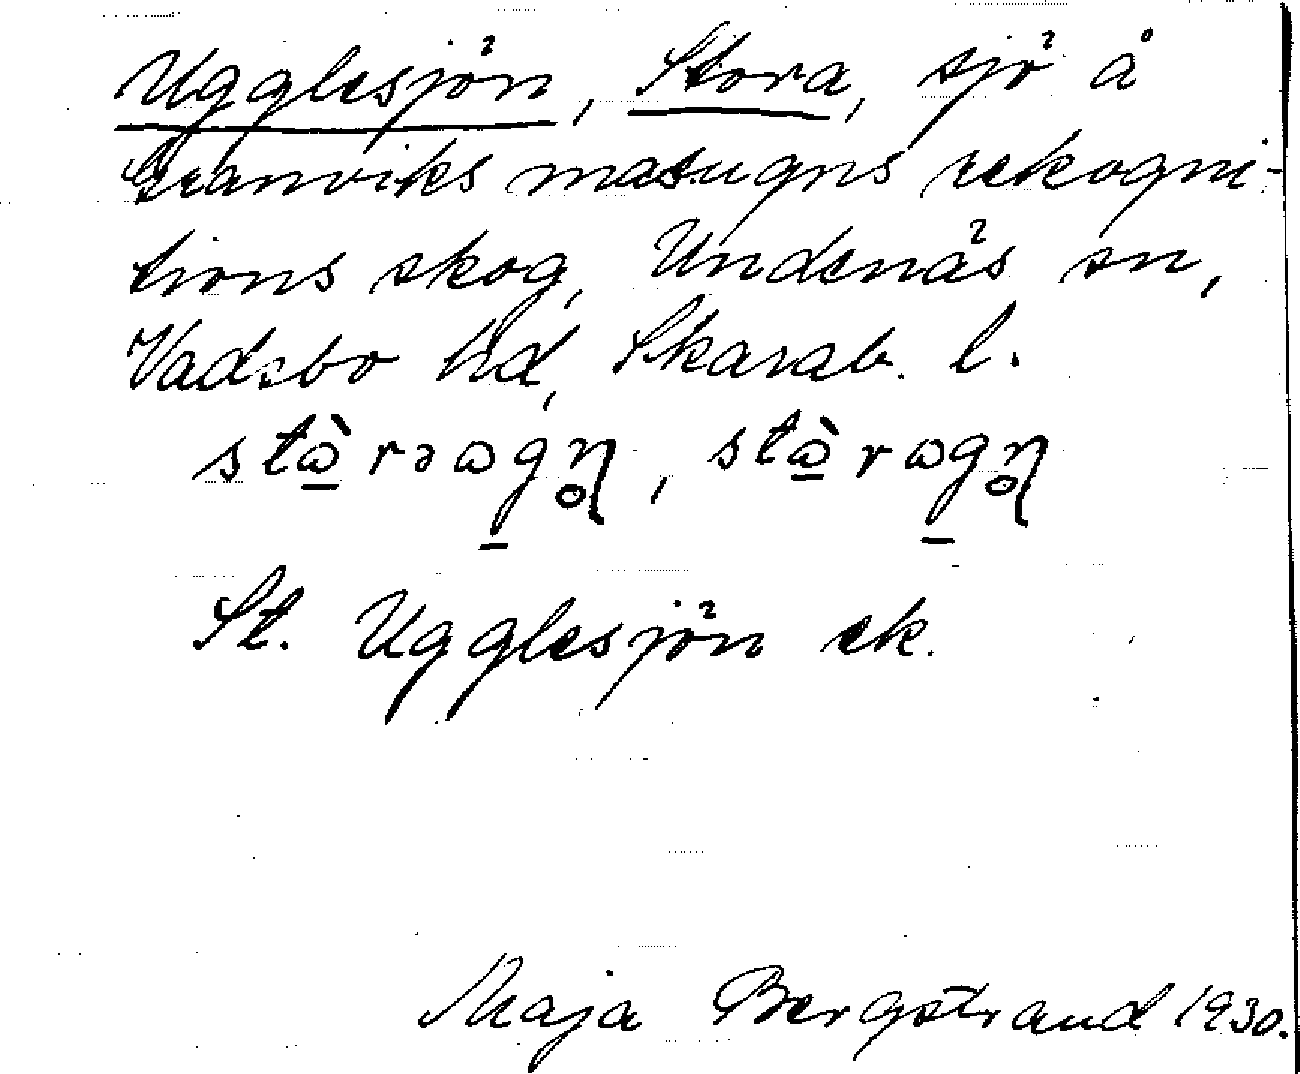 Ugglesjön, Stora, sjö å
Granviks masugns rekogni-
tions skog, Undenäs sn,
Vadsbo hd, Skarab. l.
stɷ̠̀rəɷg̠n̥, stɷ̠̀rɷg̠n̥
St. Ugglesjön ek.
Maja Bergstrand 1930.